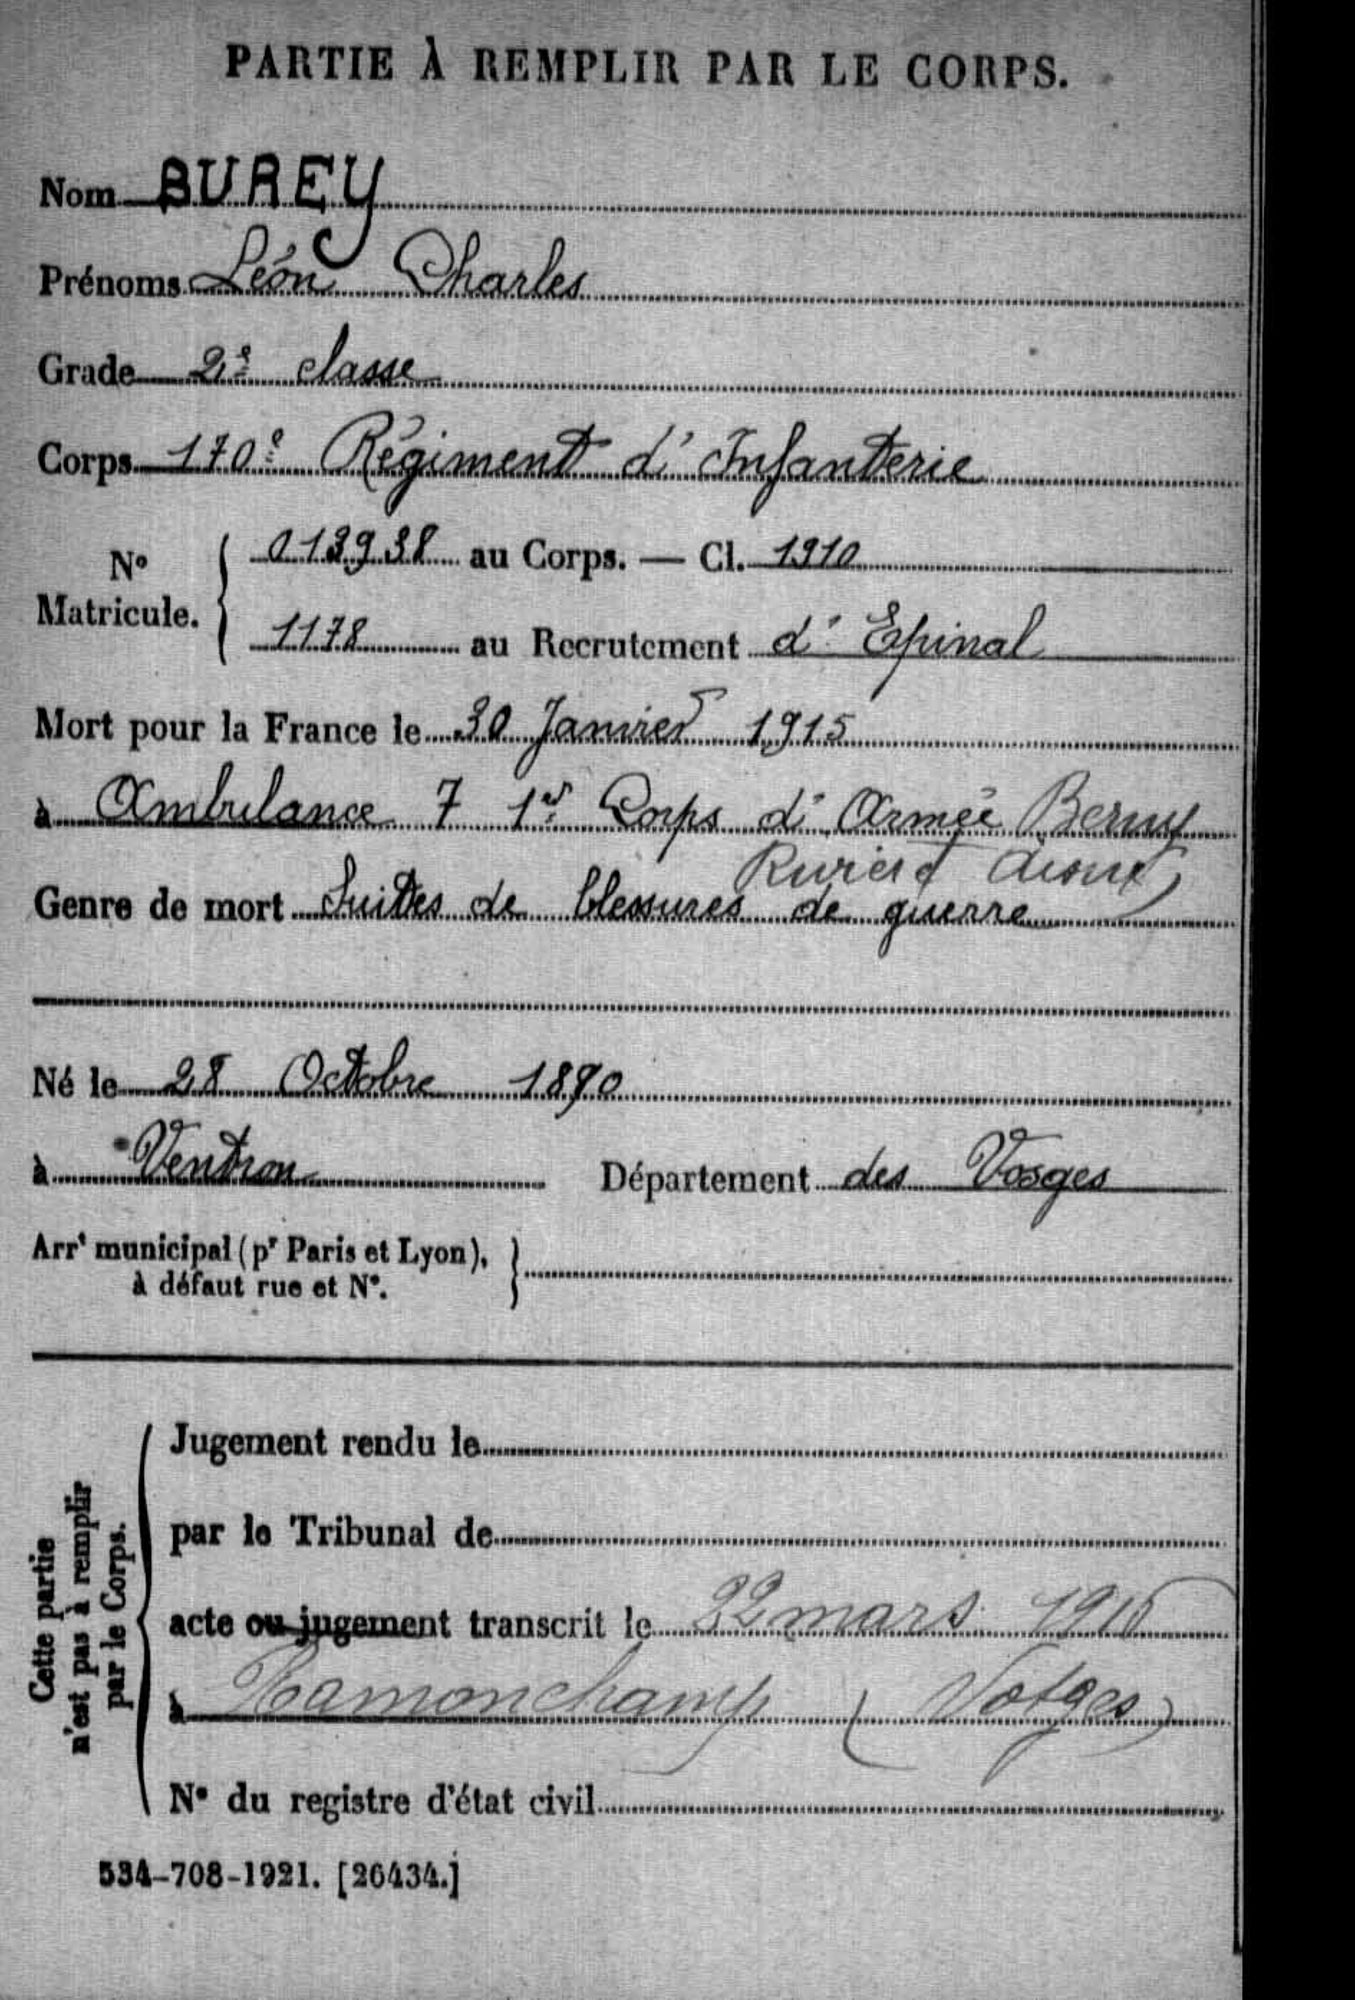 PARTIE À REMPLIR PAR LE CORPS.
Nom BUREY
Prénoms Léon Charles
Grade 2e classe
Corps 170e Régiment d'Infanterie
No Matricule. 013938 au Corps. — Cl. 1910
1178 au Recrutement d'Epinal
Mort pour la France le 30 Janvier 1915
à Ambulance 7 1er Corps d'Armée Berny
Rivière Aisne
Genre de mort Suites de blessures de guerre
Né le 28 Octobre 1890
à Ventron Département des Vosges
Arrt municipal (pr Paris et Lyon),
à défaut rue et No.
Cette partie
n'est pas à remplir
par le Corps.
Jugement rendu le
par le Tribunal de
acte ou jugement transcrit le 22 mars 1915
à Ramonchamp (Vosges)
No du registre d'état civil
534-708-1921. [26434.]